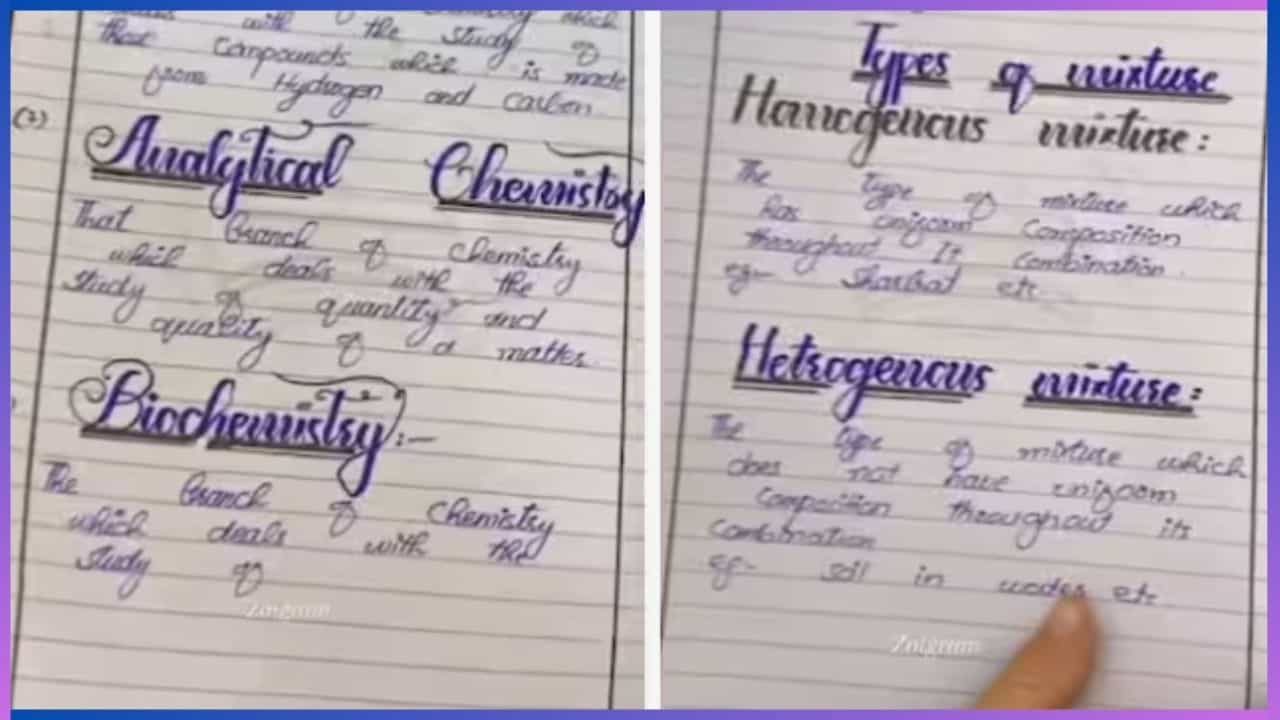 with the study of
those compounds which is made
from Hydrogen and Carbon
(2)
Analytical Chemistry
That branch of chemistry
which deals with the
study of quantity and
quality of a matter.
Biochemistry:-
The branch of chemistry
which deals with the
study of
Zoigram
Types of mixture
Homogenous mixture:
The type of mixture which
has uniform Composition
throughout It Combination.
eg- Sharbat etc
Hetrogenous mixture:
The type of mixture which
does not have uniform
throughout its
Combination
eg- soil in etc
Zoigram